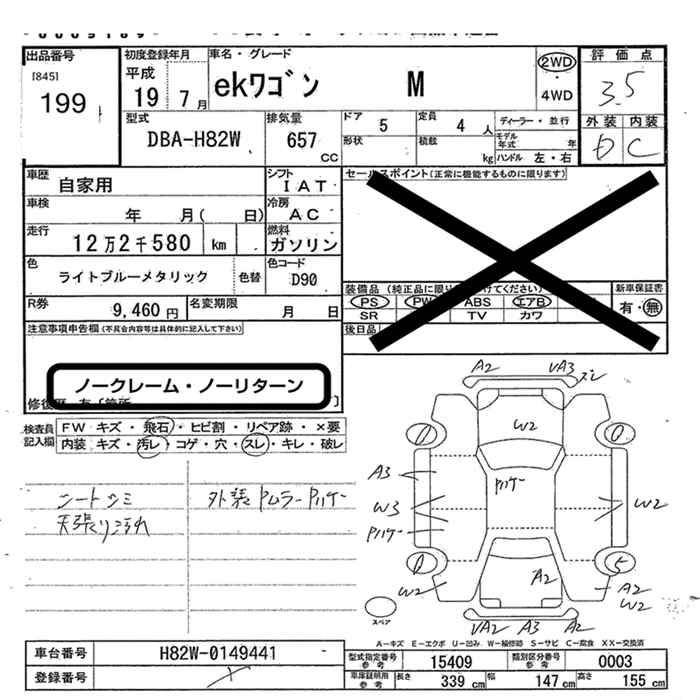 出品番号
[845]
199
初度登録年月
平成
19 7 月
車名・グレード
ekワゴン M
2WD
・
4WD
評価点
3.5
外装 内装
D C
型式
DBA-H82W
排気量
657
CC
ドア 5
形状
定員 4 人
積載 kg
ディーラー・並行
モデル年式 年
ハンドル 左・右
車歴
自家用
シフト
IAT
車検
年 月( 日)
冷房
AC
走行
12万2千580 km
燃料
ガソリン
色
ライトブルーメタリック
色替
色コード
D90
R券
9,460 円
名変期限
月 日
セールスポイント(正常に機能するものに限ります)
装備品
PS PW ABS エアB
SR TV カワ
後日品
新車保証書
有・無
注意事項申告欄(不具合内容等は具体的に記入して下さい)
ノークレーム・ノーリターン
検査員
記入欄
FW キズ・飛石・ヒビ割・リペア跡・×要
内装 キズ・汚レ・コゲ・穴・スレ・キレ・破レ
シートシミ
天張り汚れ
外装
A2 VA3 ズレ
W2
A3
W3
W2
A2
W2
5
A2
W2
VA2 A3 A2
スペア
A-キズ E-エクボ U-凹み W-補修跡 S-サビ C-腐食 XX-交換済
車台番号
H82W-0149441
登録番号
型式指定番号
参考
15409
類別区分番号
参考
0003
車庫証明用
参考
長さ 339 cm
幅 147 cm
高さ 155 cm